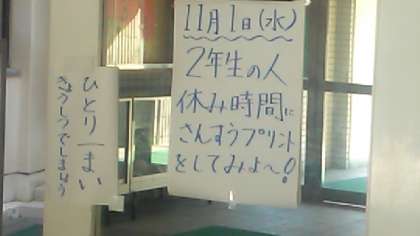 11月1日(水)
2年生の人
休み時間に
さんすうプリント
をしてみよ〜!
ひとり一まい
きょうしつでしましょう